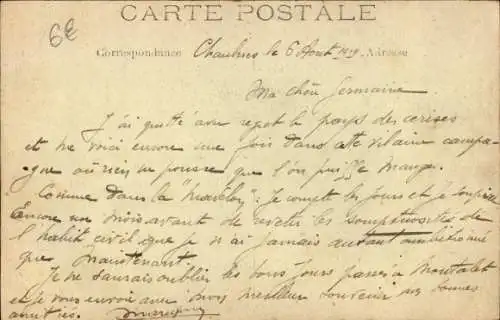 6€
CARTE POSTALE
Correspondance Adresse
Chaulnes le 6 Août 1919
Ma chère Germaine
J'ai quitté avec regret le pays des cerises
et me voici encore une fois dans cette vilaine campa-
gne où rien ne pousse que l'on puisse manger.
Comme dans la " " je compte les jours et je soupire
Encore un mois avant de revêtir les somptuosités de
l'habit civil que je n'ai jamais autant ambitionné
que maintenant.
Je ne saurais oublier les bons jours passés à Montalet
et je vous envoie avec mon meilleur souvenir mes bonnes
amitiés.